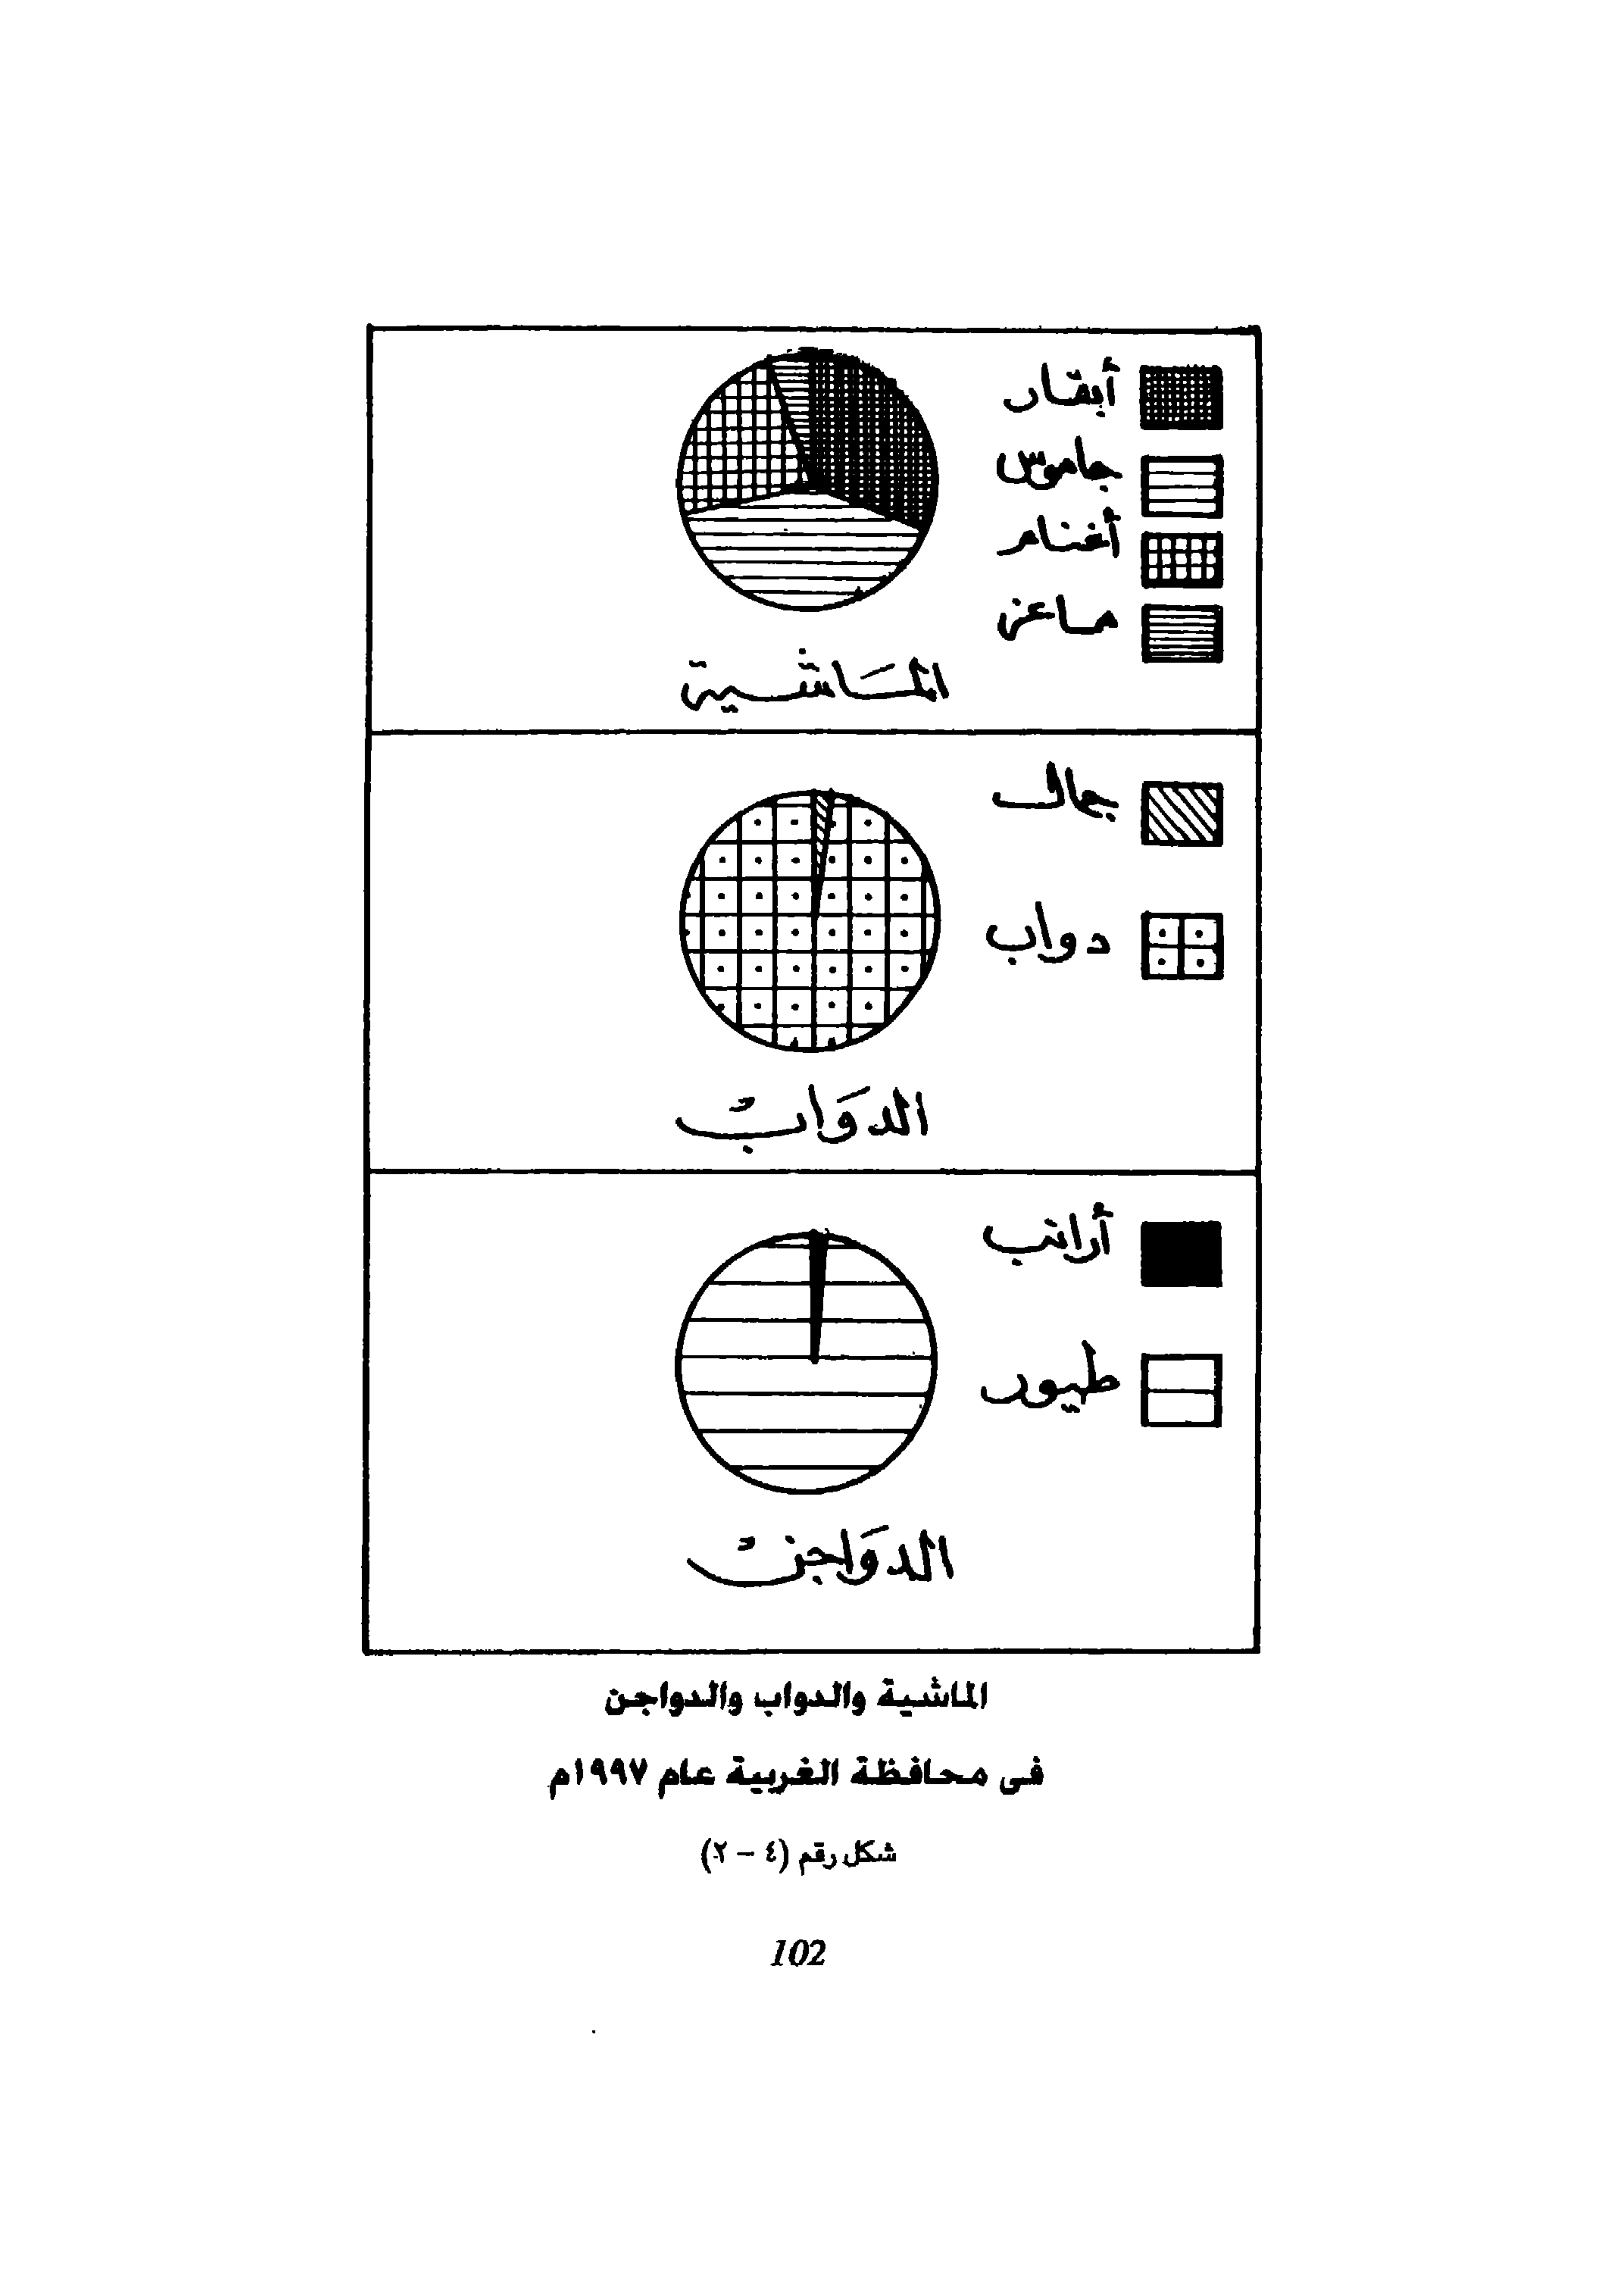 أبقار
جاموس
أغنام
ماعز
الماشية
جمال
دواب
الدواب
أرانب
طيور
الدواجن
الماشية والدواب والدواجن
فى محافظة الغربية عام ١٩٩٧م
شكل رقم (٤ - ٢)
102